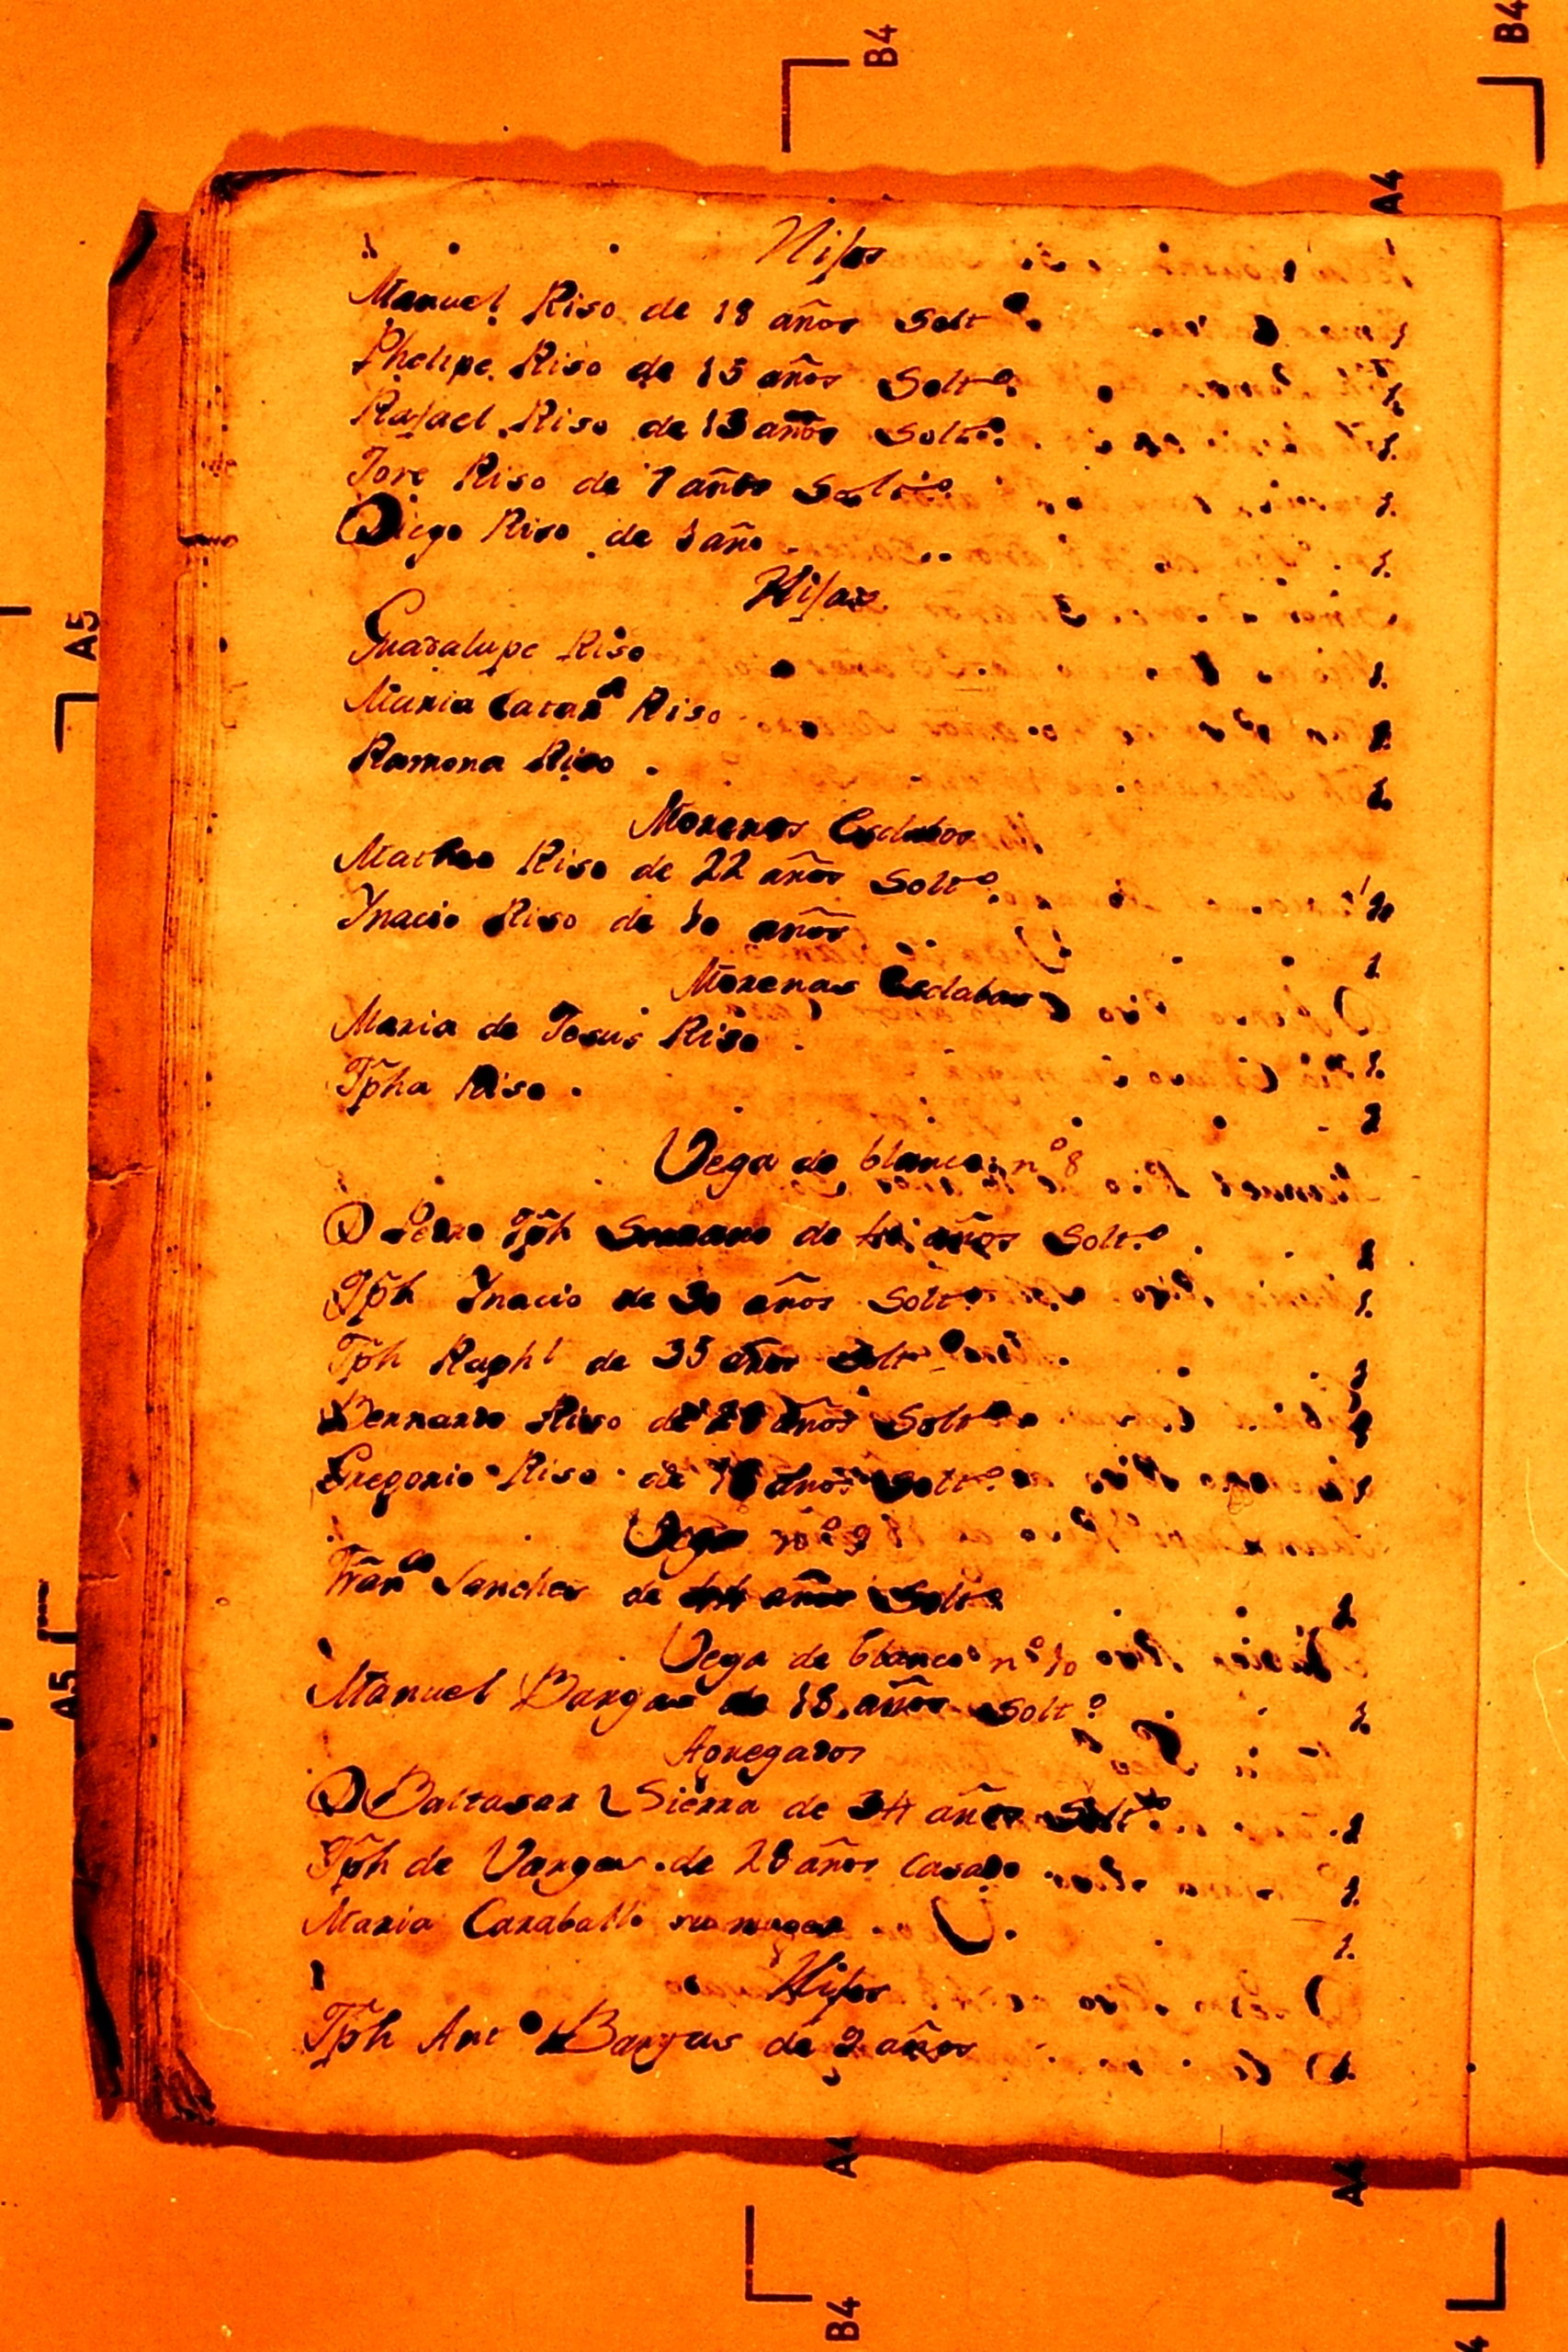 B4
B4
A4
A5
A5
Hijos
Manuel Riso de 18 años Solt.º 1
Phelipe Riso de 15 años Solt.º 1.
Rafael Riso de 13 años Solt.º 1.
Jose Riso de 7 años Solt.º 1.
Diego Riso de 1 año 1.
Hijas
Guadalupe Riso 1.
Maria Catarª Riso 1.
Ramona Riso 1.
Morenos Esclabos
Matheo Riso de 22 años Solt.º 1.
Ynacio Riso de 10 años 1
Morenas Esclabas
Maria de Jesus Riso 1.
Jpha Riso 1
Vega de blancos nº 8
D Pedro Jph de años Solt.º 1
Jph Ynacio de 30 años Solt.º 1.
Jph Raphl de 35 años Solt.º 1
Bernardo Riso de años Solt.º 1
Gregorio Riso de años Solt.º 1
Vega nº 9
Franco Sanches de 44 años Solt.º 1
Vega de blancos nº 10
Manuel Bargas de 18 años Solt.º 1.
Agregados
D Baltasar Sierra de 34 años Solt.º 1
Jph de Vargas de 28 años Casado 1.
Maria Caraballo su muger 1.
Hijos
Jph Antº Bargas de 2 años 1.
A4
A4
B4
4